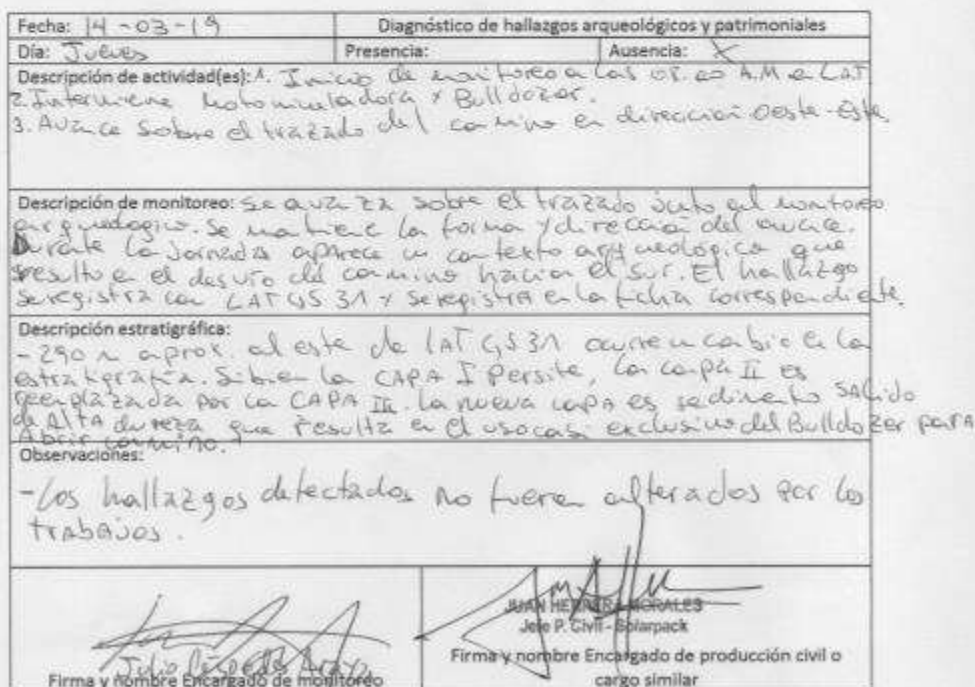 Fecha: 14-03-19
Diagnóstico de hallazgos arqueológicos y patrimoniales
Día: Jueves
Presencia:
Ausencia: X
Descripción de actividad(es): 1. Inicio de monitoreo a las 08:00 A.M a LAT
2. Interviene Motoniveladora y Bulldozer.
3. Avance sobre el trazado del camino en dirección Oeste-Este.
Descripción de monitoreo: Se avanza sobre el trazado junto al monitoreo
arqueologico. Se mantiene la forma y dirección del avance.
Durante la Jornada aparece un contexto arqueológico que
resulto en el desvío del camino hacia el sur. El hallazgo
se registra con LAT GS 31 y se registra en la ficha correspondiente.
Descripción estratigráfica:
- 290 m aprox. al este de LAT GS 31 ocurre un cambio en la
estratigrafía. Si bien la CAPA I Persite, la capa II es
reemplazada por la CAPA III. La nueva capa es sedimento salido
de Alta dureza que resulta en el uso casi exclusivo del Bulldozer para
Abrir camino.
Observaciones:
- Los hallazgos detectados no fueron alterados por los
trabajos.
JUAN HERRERA MORALES
Jefe P. Civil - Solarpack
Julio Céspedes Araya
Firma y nombre Encargado de monitoreo
Firma y nombre Encargado de producción civil o
cargo similar